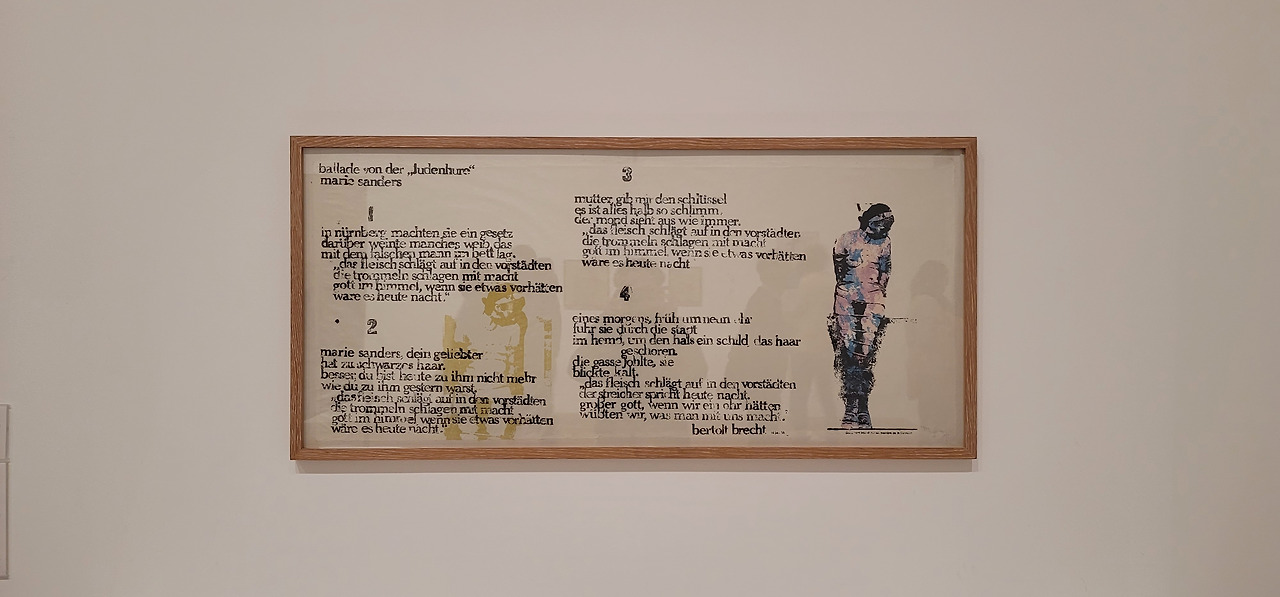 ballade von der „Judenhure“
marie sanders
1
in nürnberg machten sie ein gesetz
darüber weinte manches weib, das
mit dem falschen mann im bett lag.
„das fleisch schlägt auf in den vorstädten
die trommeln schlagen mit macht
gott im himmel, wenn sie etwas vorhätten
wäre es heute nacht.“
2
marie sanders, dein geliebter
hat zu schwarzes haar.
besser, du bist heute zu ihm nicht mehr
wie du zu ihm gestern warst.
„das fleisch schlägt auf in den vorstädten
die trommeln schlagen mit macht
gott im himmel wenn sie etwas vorhätten
wäre es heute nacht.“
3
mutter, gib mir den schlüssel
es ist alles halb so schlimm.
der mond sieht aus wie immer.
„das fleisch schlägt auf in den vorstädten
die trommeln schlagen mit macht
gott im himmel, wenn sie etwas vorhätten
wäre es heute nacht“
4
eines morgens, früh um neun uhr
fuhr sie durch die stadt
im hemd, um den hals ein schild, das haar
geschoren.
die gasse johlte, sie
blickte kalt.
„das fleisch schlägt auf in den vorstädten
der streicher spricht heute nacht.
großer gott, wenn wir ein ohr hätten
wüßten wir, was man mit uns macht.
bertolt brecht